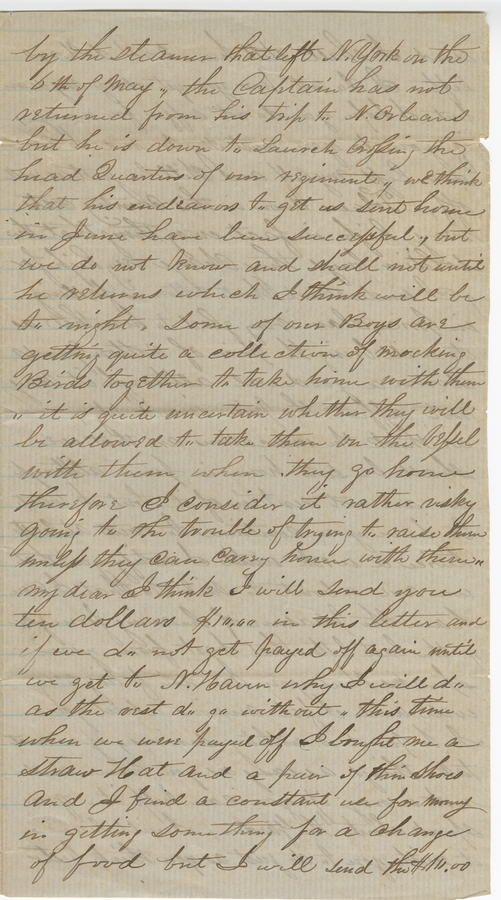 by the steamer that left N. York on the
6th of May, the Captain has not
returned from his trip to N. Orleans
but he is down to Laurch Crossing the
head Quarters of our regiment, we think
that his endeavors to get us sent home
in June have been successful, but
we do not know and shall not until
he returns which I think will be
to night. Some of our Boys are
getting quite a collection of mocking
Birds together to take home with them
" it is quite uncertain whether they will
be allowed to take them on the Vessel
with them when they go home
therefore I consider it rather risky
going to the trouble of trying to raise them
unless they can carry home with them"
my dear I think I will send you
ten dollars $10.00 in this letter and
if we do not get payed off again until
we get to N. Haven why I will do
as the rest do go without " this time
when we were payed off I bought me a
Straw Hat and a pair of thin Shoes
and I find a constant use for money
in getting something for a change
of food but I will send the $10.00